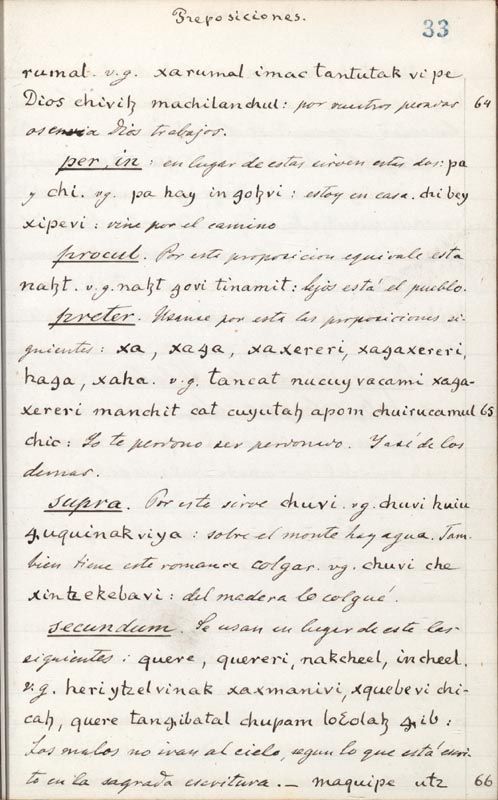 Preposiciones.
33
rumal. v.g. xarumal imac tantutak vi pe
Dios chiviꜩ machilanchul: por vuestros pecados 64
os envia Dios trabajos.
per, in: en lugar de estas sirven estas dos: pa
y chi. vg. pa hay in goꜩvi: estoy en casa. chi bey
xipevi: vine por el camino
procul. Por esta proposicion equivale esta
naꜩt. v.g. naꜩt govi tinamit: lejos está el pueblo.
preter. Usense por esta las proposiciones si-
guientes: xa, xaga, xaxereri, xagaxereri,
haga, xaha. v.g. tancat nucuy vacami xaga-
xereri manchit cat cuyutaꜩ apom chuirucamul 65
chic: Yo te perdono ser perdonado. Y asi de los
demas.
supra. Por esta sirve chuvi. vg. chuvi huiu
ꜭuquinak viya: sobre el monte hay agua. Tam-
bien tiene este romance colgar. vg. chuvi che
xintzekebavi: del madera lo colgué.
secundum. Se usan en lugar de este las
siguientes: quere, quereri, nakcheel, incheel.
v.g. heri ytzel vinak xaxmanivi, xquebevi chi-
caꜩ, quere tanꜭibatal chupam loꜫolaꜩ ꜭib:
Los malos no iran al cielo, segun lo que está escri-
to en la sagrada escritura. — maquipe utz 66